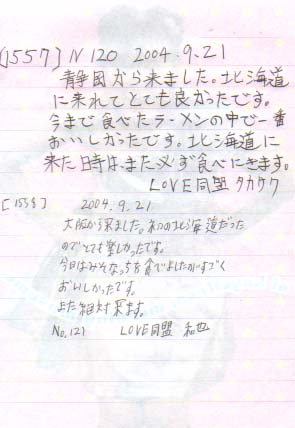 [1557] N 120 2004.9.21
静岡から来ました。北海道
に来れてとても良かったです。
今まで食べたラーメンの中で一番
おいしかったです。北海道に
来た時は、また必ず食べにきます。
LOVE同盟 タカユケ
[1558] 2004.9.21
大阪から来ました。初の北海道だった
のでとても楽しかったです。
今日はみそなっちを食べましたがすごく
おいしかったです。
また絶対来ます。
No.121 LOVE同盟 和也